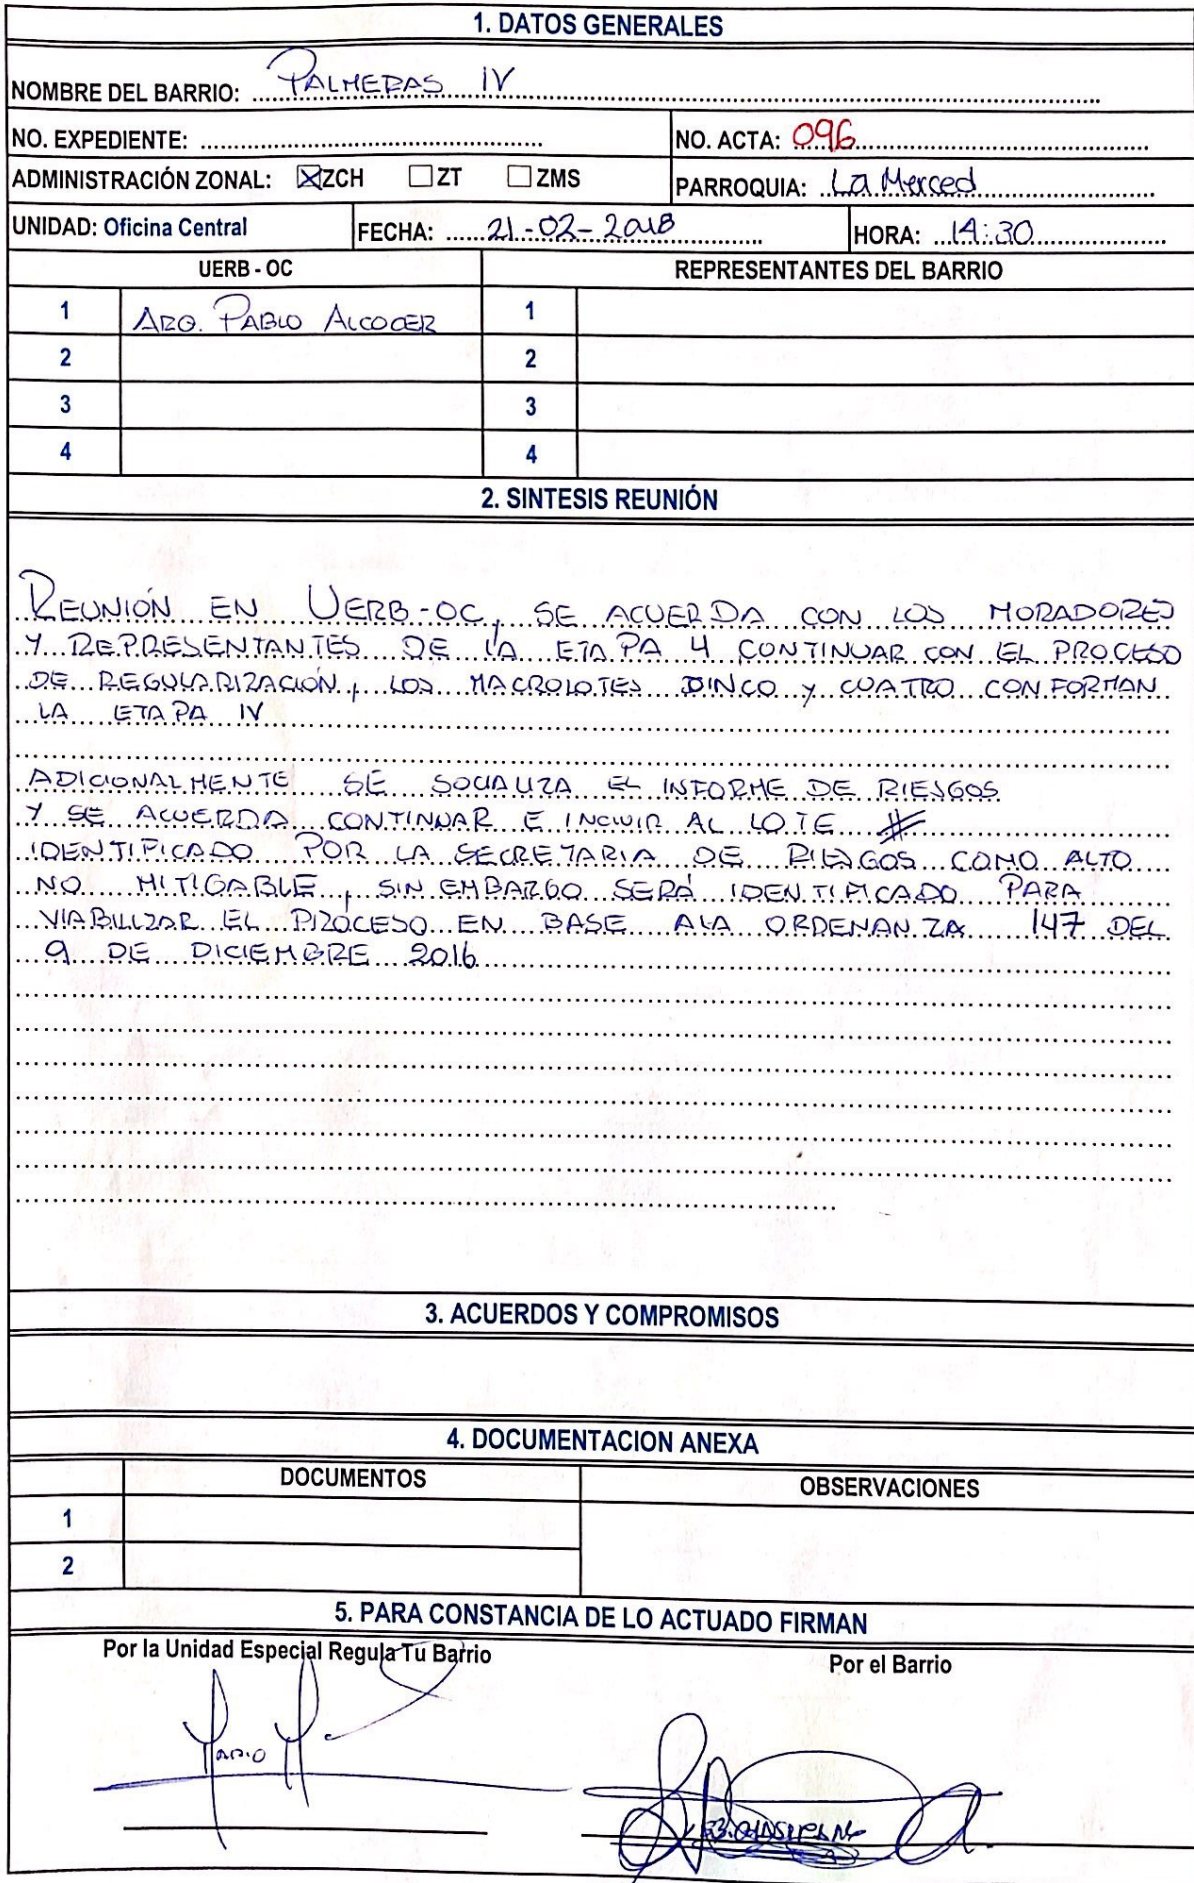 1. DATOS GENERALES
NOMBRE DEL BARRIO: PALMERAS IV
NO. EXPEDIENTE:
NO. ACTA: 096
ADMINISTRACIÓN ZONAL: ☒ZCH ☐ZT ☐ZMS
PARROQUIA: La Merced
UNIDAD: Oficina Central
FECHA: 21-02-2018
HORA: 14:30
UERB - OC
REPRESENTANTES DEL BARRIO
1 ARQ. PABLO ALCOCER 1
2 2
3 3
4 4
2. SINTESIS REUNIÓN
REUNIÓN EN UERB-OC, SE ACUERDA CON LOS MORADORES
Y REPRESENTANTES DE LA ETAPA 4 CONTINUAR CON EL PROCESO
DE REGULARIZACIÓN, LOS MACROLOTES DINCO Y CUATRO CONFORMAN
LA ETAPA IV
ADICIONALMENTE SE SOCIALIZA EL INFORME DE RIESGOS
Y SE ACUERDA CONTINUAR E INCLUIR AL LOTE #
IDENTIFICADO POR LA SECRETARIA DE RIESGOS COMO ALTO
NO MITIGABLE, SIN EMBARGO SERÁ IDENTIFICADO PARA
VIABILIZAR EL PROCESO EN BASE A LA ORDENANZA 147 DEL
9 DE DICIEMBRE 2016
3. ACUERDOS Y COMPROMISOS
4. DOCUMENTACION ANEXA
DOCUMENTOS
OBSERVACIONES
1
2
5. PARA CONSTANCIA DE LO ACTUADO FIRMAN
Por la Unidad Especial Regula Tu Barrio
Por el Barrio